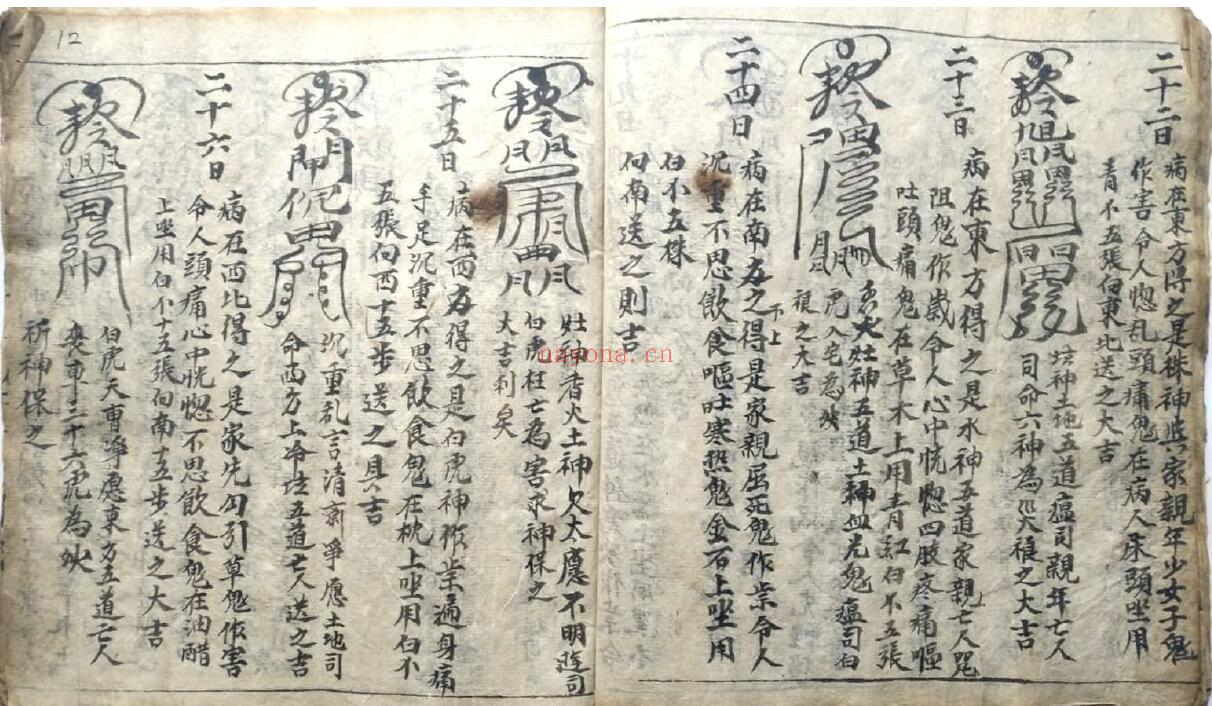 二十二日
病在東方得之是株神
家親年少女子鬼
作害令人惚乱頭痛鬼在病人床頭坐用
青不五張向東北送之大吉
神土地五道瘟司親年亡人
司命六神為災禳之大吉
二十三日
病在東方得之是水神五道家親亡人
阻鬼作 令人心中恍惚四肢疼痛嘔
吐頭痛鬼在草木上用青紅白不五張
火灶神五道土神血光鬼瘟司白
虎入宅為
禳之大吉
二十四日
病在南方之得是家親屈死鬼作祟令人
下上
沉重不思飲食嘔吐寒热鬼金石上坐用
白不五株
向南送之則吉
灶神香火土神欠太應不明
司
白虎枉亡為害求神保之
大吉利矣
二十五日
病在西方得之是白虎神作祟遍身痛
手足沉重不思飲食鬼在枕上坐用白不
五張向西十五步送之具吉
沉重乱言清 爭應土地司
命西方上冷 五道亡人送之吉
二十六日
病在西北得之是家先勾引草鬼作害
令人頭痛心中恍惚不思飲食鬼在油醋
上坐用白不十五張向南十五步送之大吉
白虎天曹 應東方五道亡人
三十六虎為
祈神保之
12
nayona.cn